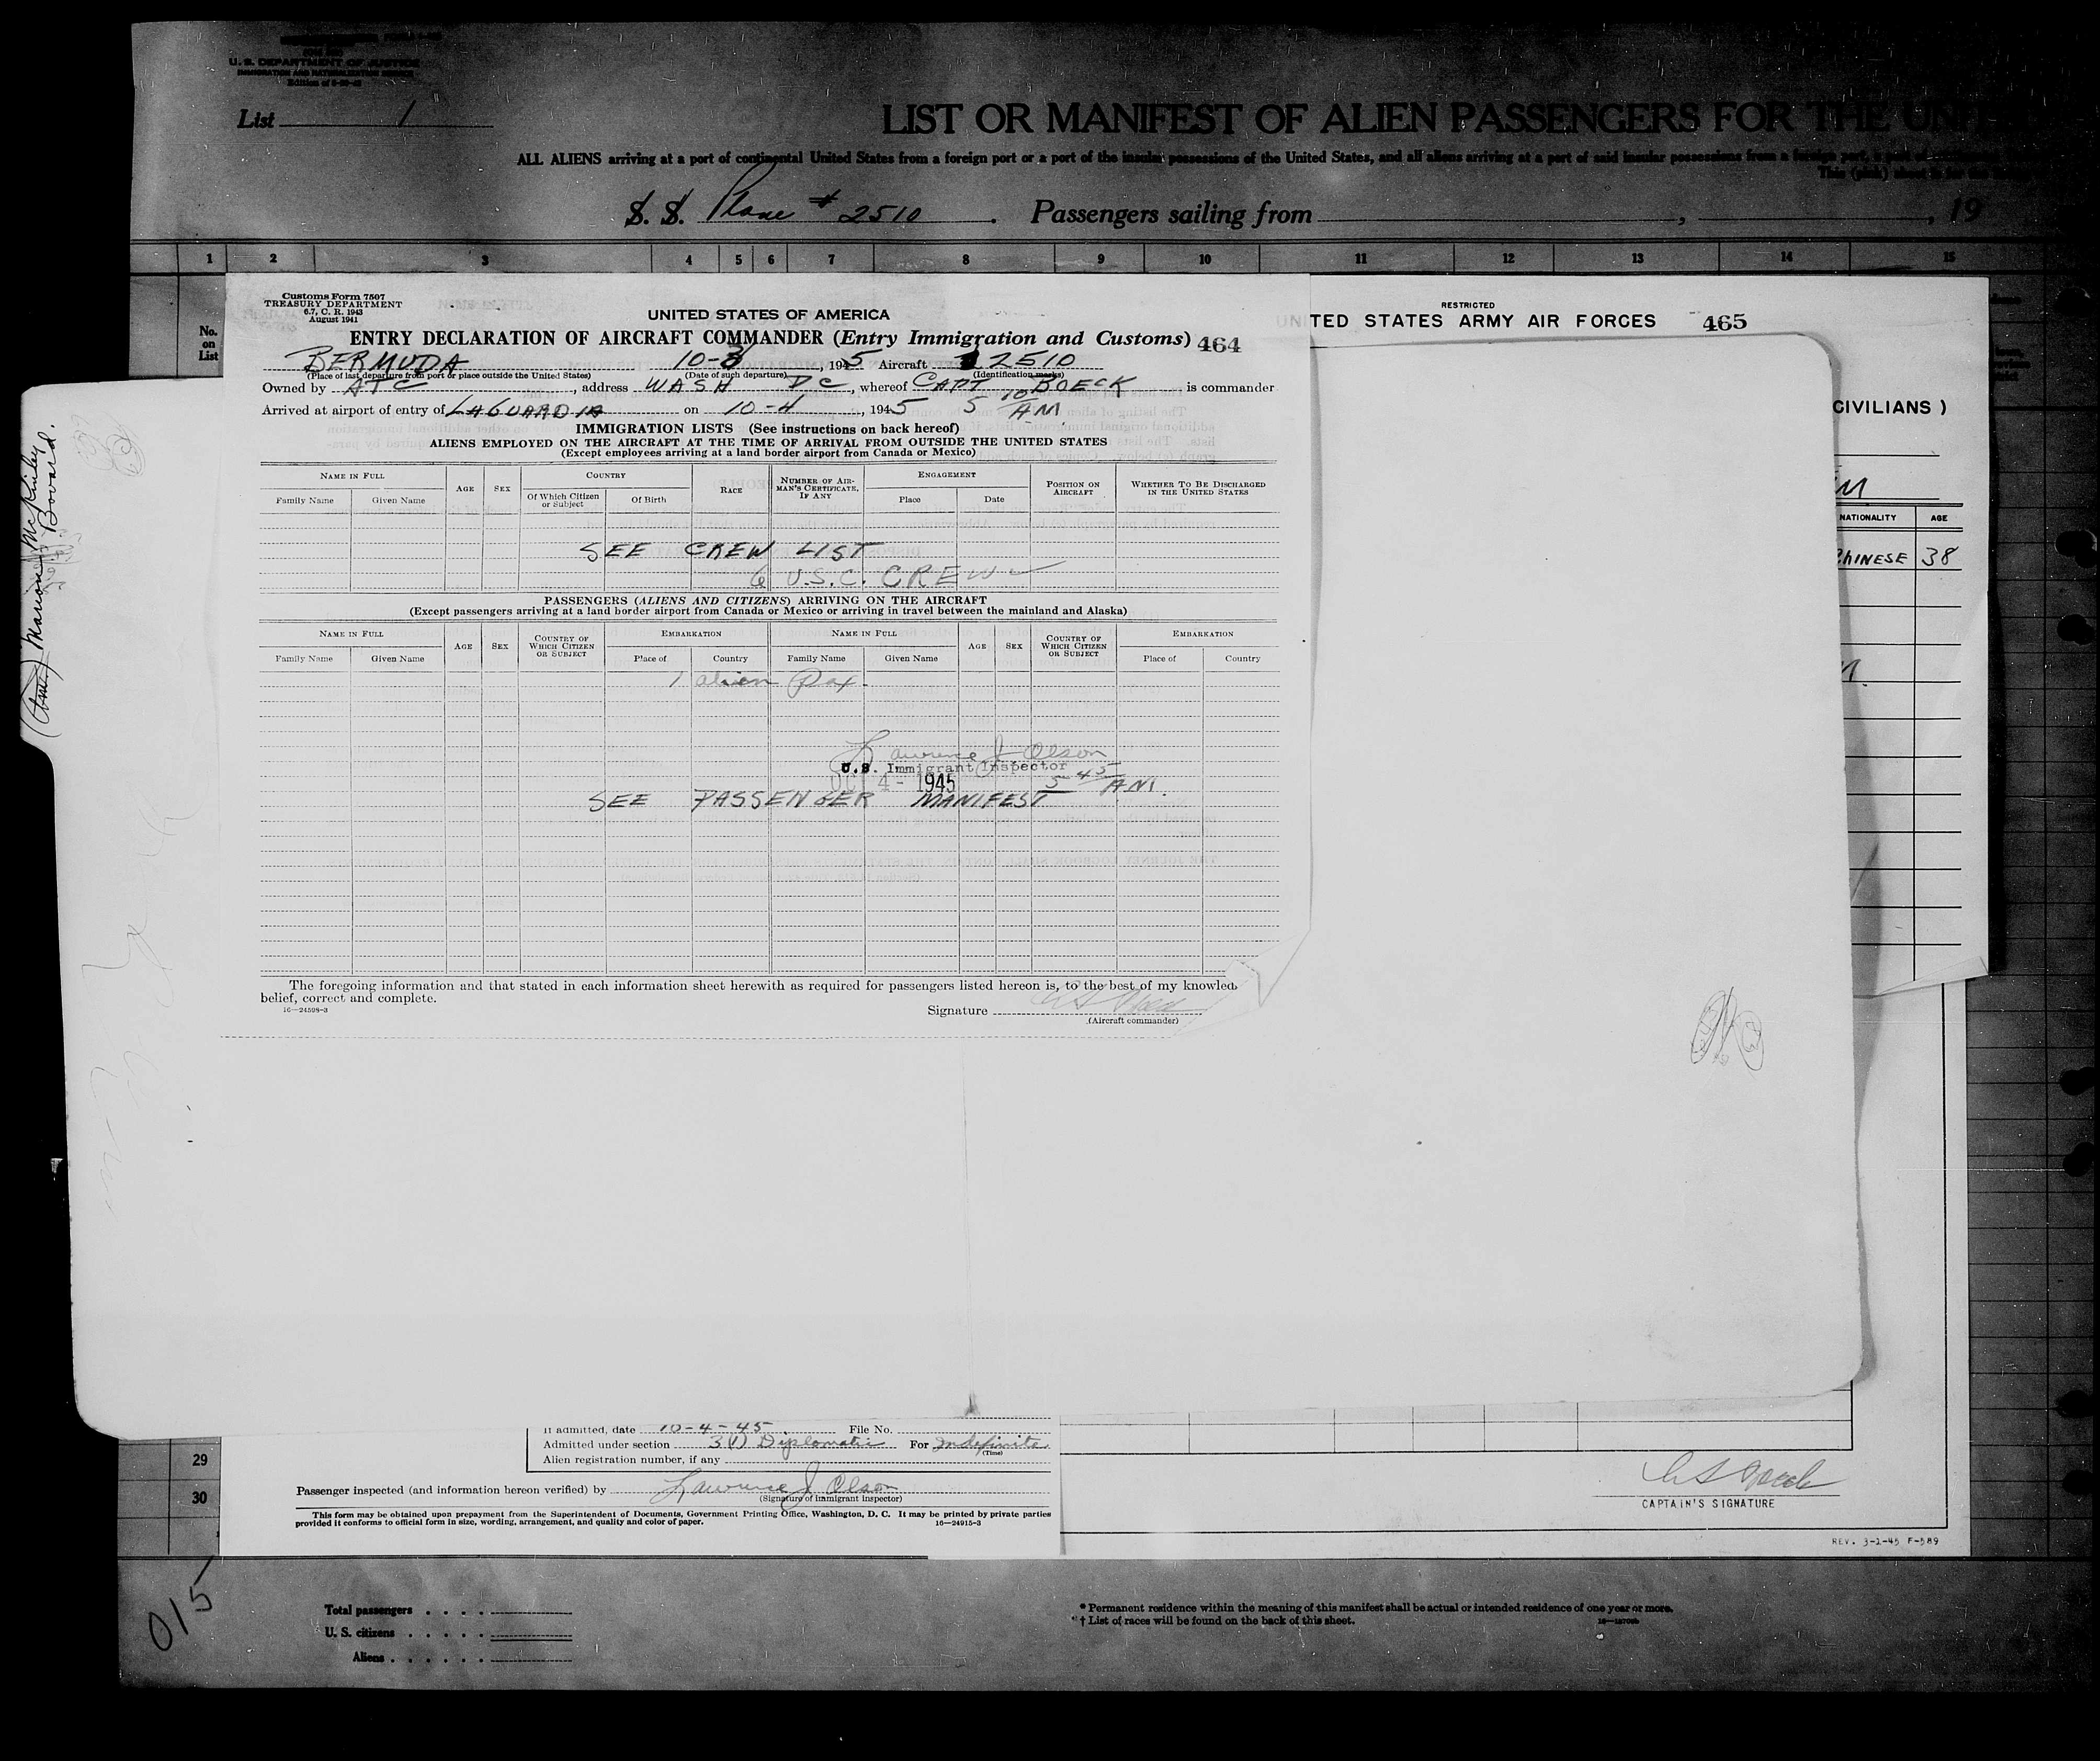 U. S. DEPARTMENT OF JUSTICE
IMMIGRATION AND NATURALIZATION SERVICE
List 1
LIST OR MANIFEST OF ALIEN PASSENGERS FOR THE UNI
ALL ALIENS arriving at a port of continental United States from a foreign port or a port of the insular possessions of the United States, and all aliens arriving at a port of said insular possessions from a foreign port, a port of
S. S. Plane # 2510 . Passengers sailing from , , 19
1 2 3 4 5 6 7 8 9 10 11 12 13 14 15
No. on List
Customs Form 7507
TREASURY DEPARTMENT
6.7, C. R. 1943
August 1941
UNITED STATES OF AMERICA
ENTRY DECLARATION OF AIRCRAFT COMMANDER (Entry Immigration and Customs) 464
BERMUDA 10-3, 1945 Aircraft 2510
(Place of last departure from port or place outside the United States) (Date of such departure) (Identification marks)
Owned by ATC, address WASH DC, whereof CAPT BOECK is commander
Arrived at airport of entry of LAGUARDIA on 10-4, 1945 5 10 AM
IMMIGRATION LISTS (See instructions on back hereof)
ALIENS EMPLOYED ON THE AIRCRAFT AT THE TIME OF ARRIVAL FROM OUTSIDE THE UNITED STATES
(Except employees arriving at a land border airport from Canada or Mexico)
NAME IN FULL AGE SEX COUNTRY RACE NUMBER OF AIRMAN'S CERTIFICATE, IF ANY ENGAGEMENT POSITION ON AIRCRAFT WHETHER TO BE DISCHARGED IN THE UNITED STATES
Family Name Given Name Of Which Citizen or Subject Of Birth Place Date
SEE CREW LIST
6 U.S.C. CREW
PASSENGERS (ALIENS AND CITIZENS) ARRIVING ON THE AIRCRAFT
(Except passengers arriving at a land border airport from Canada or Mexico or arriving in travel between the mainland and Alaska)
NAME IN FULL AGE SEX COUNTRY OF WHICH CITIZEN OR SUBJECT EMBARKATION NAME IN FULL AGE SEX COUNTRY OF WHICH CITIZEN OR SUBJECT EMBARKATION
Family Name Given Name Place of Country Family Name Given Name Place of Country
1 alien Pax
Lawrence J Olson
U.S. Immigrant Inspector
OCT 4 - 1945 5 45 AM.
SEE PASSENGER MANIFEST
The foregoing information and that stated in each information sheet herewith as required for passengers listed hereon is, to the best of my knowled
belief, correct and complete.
16—24598-3
Signature
(Aircraft commander)
RESTRICTED
UNITED STATES ARMY AIR FORCES 465
CIVILIANS )
NATIONALITY AGE
CHINESE 38
Marion McKinley
Bovard.
If admitted, date 10-4-45 File No.
Admitted under section 3(1) Diplomatic For Indefinite
(Time)
Alien registration number, if any
Passenger inspected (and information hereon verified) by Lawrence J Olson
(Signature of immigrant inspector)
This form may be obtained upon prepayment from the Superintendent of Documents, Government Printing Office, Washington, D. C. It may be printed by private parties
provided it conforms to official form in size, wording, arrangement, and quality and color of paper. 16—24915-3
29
30
CAPTAIN'S SIGNATURE
REV. 3-2-45 F-589
015
Total passengers
U. S. citizens
Aliens
* Permanent residence within the meaning of this manifest shall be actual or intended residence of one year or more.
† List of races will be found on the back of this sheet.